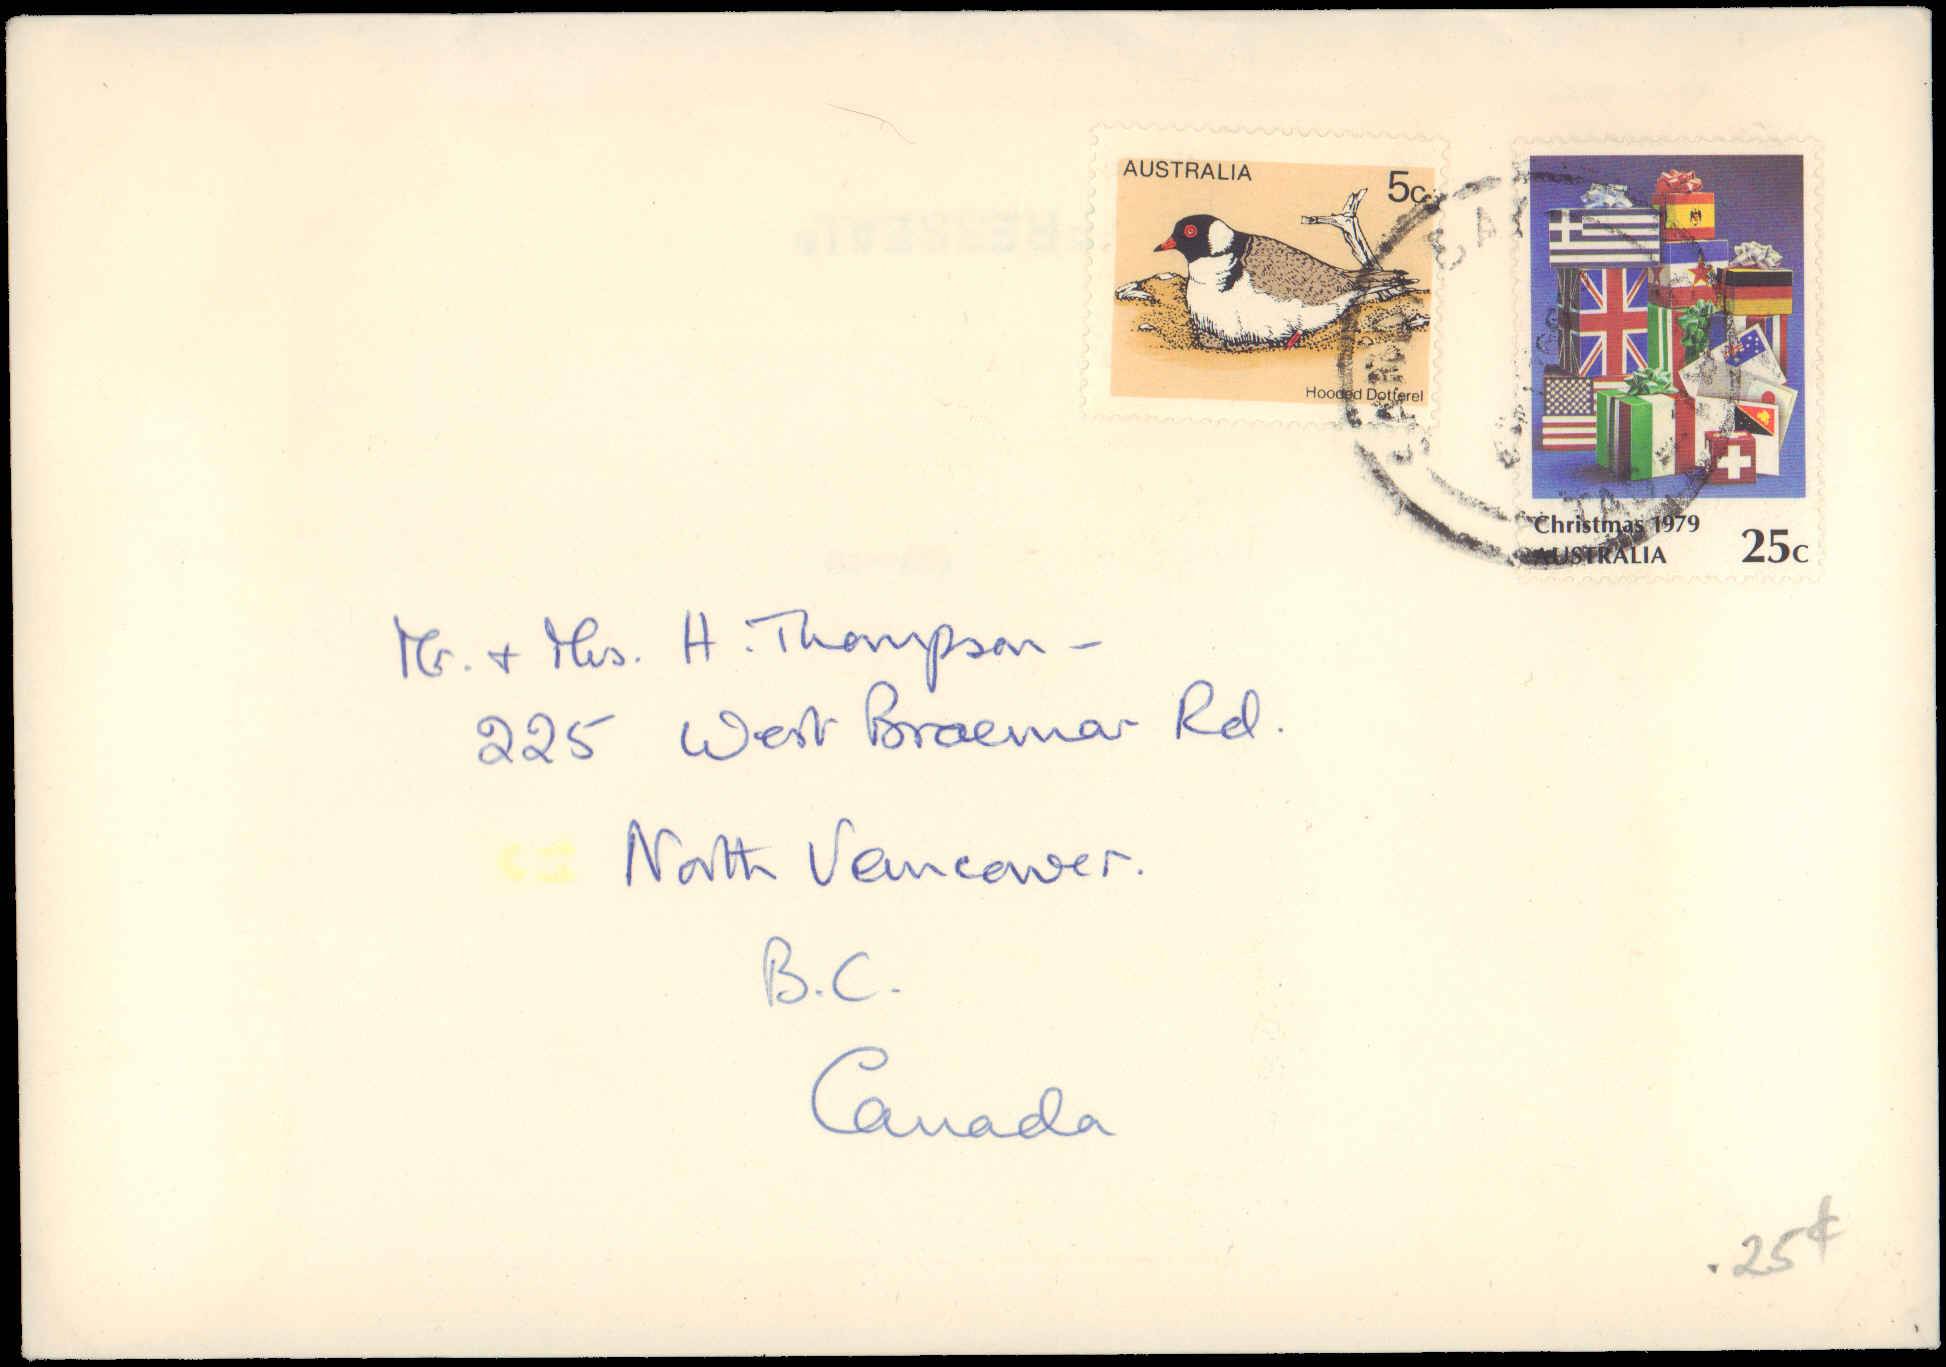 AUSTRALIA
5c
Hooded Dotterel
Christmas 1979
AUSTRALIA
25c
Mr. + Mrs. H. Thompson -
225 West Braemar Rd.
North Vancouver.
B.C.
Canada
.25¢